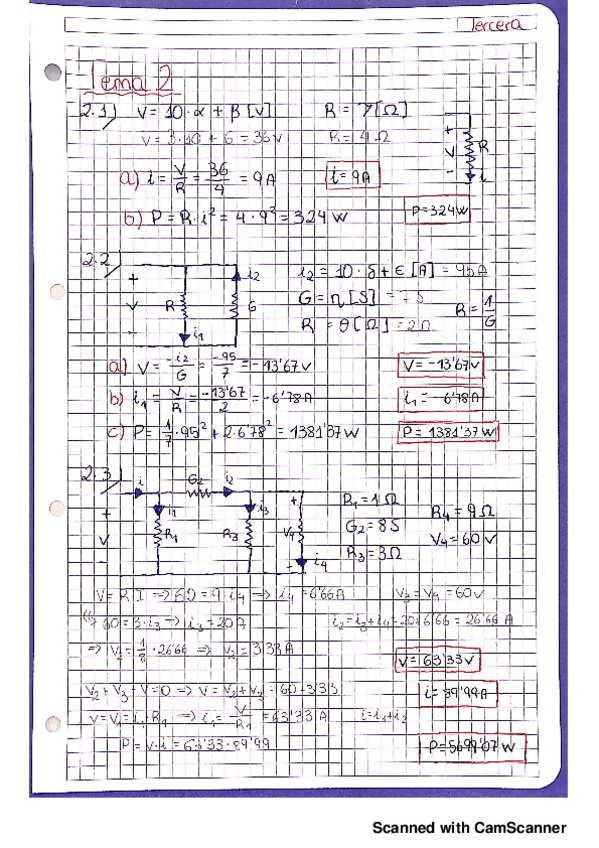 Tercera
Tema 2
2.1) V = 10·α + β [V] R = γ [Ω]
V = 3·10 + 6 = 36V R = 4Ω
+ V - R i
a) i = V/R = 36/4 = 9A i = 9A
b) P = R·i² = 4·9² = 324 W P = 324W
2.2
+ V - R i1 i2 G
i2 = 10·δ + ε [A] = 95A
G = η [S] = 7S
R = θ [Ω] = 2Ω R = 1/G
a) V = -i2/G = -95/7 = -13'67V V = -13'67V
b) i1 = V/R = -13'67/2 = -6'78A i1 = -6'78A
c) P = 1/7·95² + 2·6'78² = 1381'37W P = 1381'37W
2.3
i G2 i2
+ V - i1 R1 i3 R3 + V4 - i4
R1 = 1Ω R4 = 9Ω
G2 = 8S V4 = 60V
R3 = 3Ω
V = R·I => 60 = 9·i4 => i4 = 6'66A V3 = V4 = 60V
60 = 3·i3 => i3 = 20A i2 = i3 + i4 = 20 + 6'66 = 26'66 A
=> V2 = 1/8·26'66 => V2 = 3'33A
V = 63'33V
V2 + V3 - V = 0 => V = V2 + V3 = 60 + 3'33 i = 89'99A
V = V1 = i1·R1 => i1 = V/R1 = 63'33A i = i1 + i2
P = V·i = 63'33·89'99 P = 5699'07W
Scanned with CamScanner